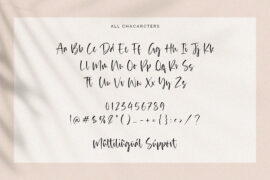 ALL CHACARCTERS
Aa Bb Cc Dd Ee Ff Gg Hh Ii Jj Kk
Ll Mm Nn Oo Pp Qq Rr Ss Tt
Uu Vv Ww Xx Yy Zz
0123456789
Multilingual Support